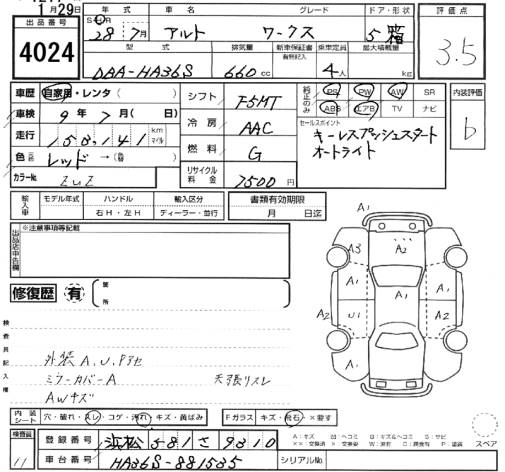 月29日
出品番号
4024
年式 車名 グレード ドア・形状
28年7月 アルト ワークス 5 箱
型式 排気量 新車保証書 有無記入 乗車定員 最大積載量
DAA-HA36S 660cc 4人 kg
評価点
3.5
車歴 自家用・レンタ( )
車検 9年7月( 日)
走行 158,141 km マイル
色 レッド→(替 )
カラーNo. ZUZ
シフト F5MT
冷房 AAC
燃料 G
リサイクル料金 7500円
純正のみ PS PW AW SR
ABS エアB TV ナビ
セールスポイント
キーレスプッシュスタート
オートライト
内装評価
b
輸入車 モデル年式 ハンドル 輸入区分
右H・左H ディーラー・並行
書類有効期限
月 日迄
出品店申告欄
※注意事項等記載
修復歴 有 箇所
検査員記入欄
外装A、U、Pアセ
ミラーカバーA 天張リスレ
AWキズ
A1
A3 A2
A1 A1
A2 U1 A1 A2
A1
スペア
内装シート 穴・破れ・スレ・コゲ・汚れ・キズ・黄ばみ
Fガラス キズ・飛石・×要す
検査員
11
登録番号 浜松 581 さ 9810
車台番号 HA36S-881585
シリアルNo.